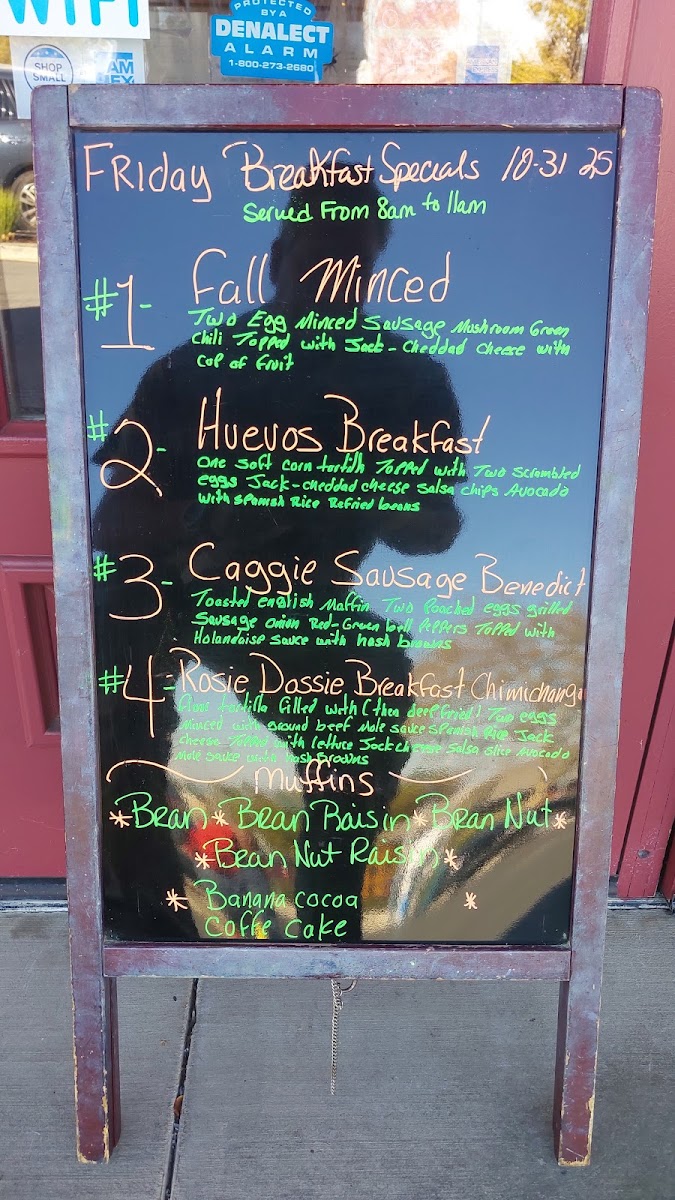 WIFI
PROTECTED
BY A
DENALECT
ALARM
1-800-273-2680
SHOP
SMALL
AM
EX
Friday Breakfast Specials 10-31 25
Served From 8am to 11am
#1- Fall Minced
Two Egg Minced Sausage Mushroom Green
Chili Topped with Jack-Cheddad Cheese with
Cup of fruit
#2- Huevos Breakfast
One Soft corn tortilla Topped with Two Scrambled
eggs Jack-cheddad cheese Salsa chips Avocado
with spanish Rice Refried beans
#3- Caggie Sausage Benedict
Toasted english Maffin Two Poached eggs grilled
Sausage onion Red-Green bell Peppers Topped with
Holandaise Sauce with hash browns
#4- Rosie Dossie Breakfast Chimichanga
flour tortilla filled with (then deep fried) Two eggs
Minced with ground beef Mole sauce Spanish Rice Jack
Cheese Topped with lettuce Jack cheese Salsa slice Avocado
Mole sauce with hash browns
Muffins
*Bran *Bran Raisin *Bran Nut*
*Bran Nut Raisin*
* Banana cocoa *
Coffe Cake